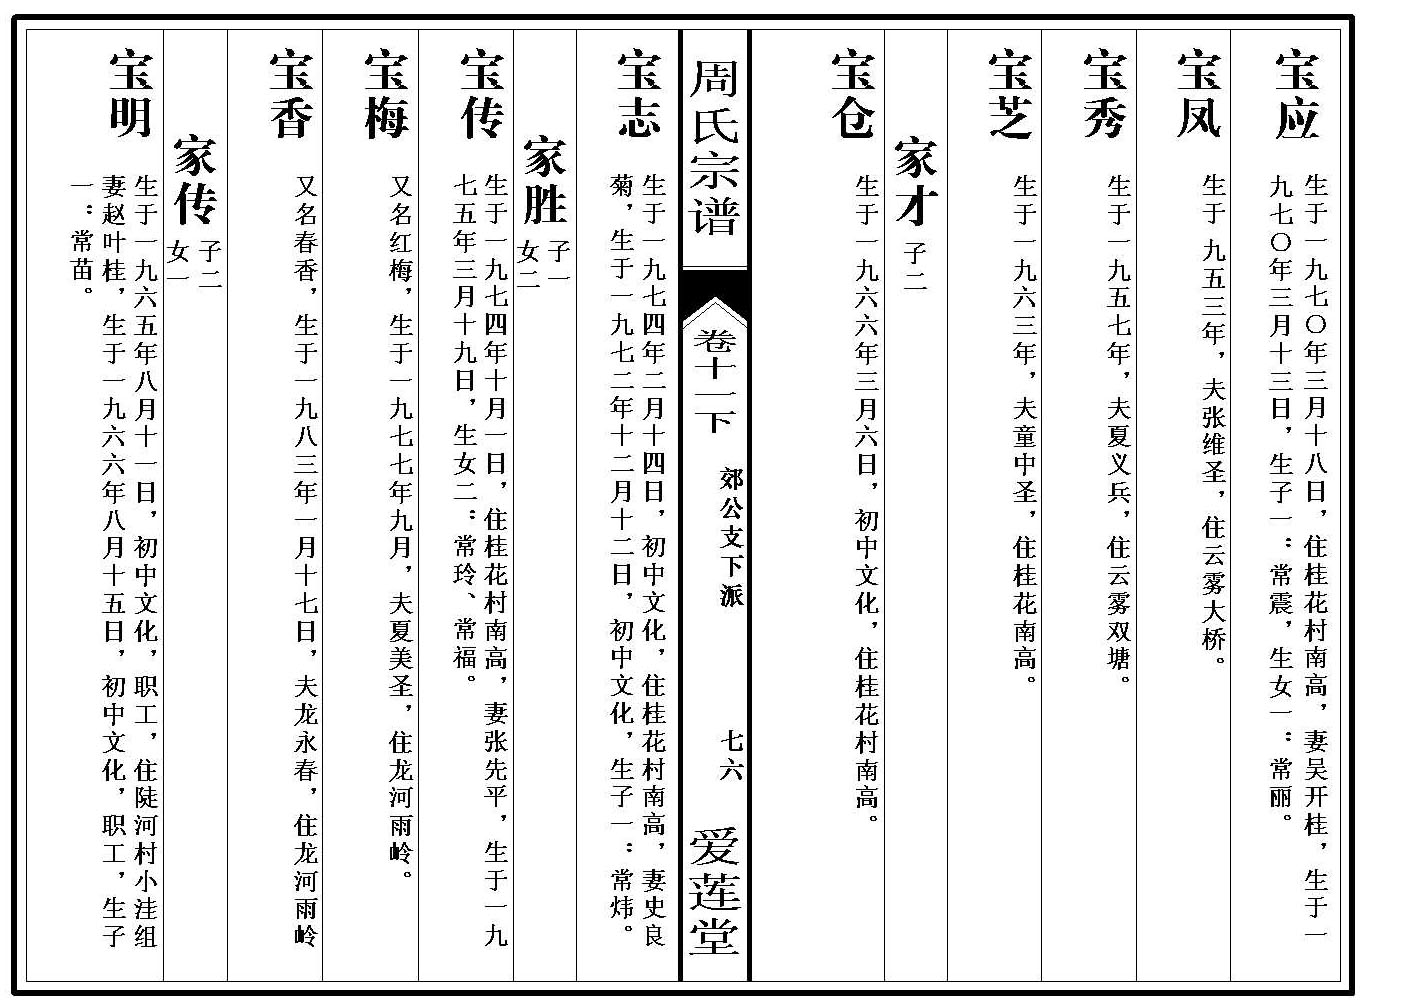 宝应
生于一九七〇年三月十八日，住桂花村南高，妻吴开桂，生于一
九七〇年三月十三日，生子一：常震，生女一：常丽。
宝凤
生于 九五三年，夫张维圣，住云雾大桥。
宝秀
生于一九五七年，夫夏义兵，住云雾双塘。
宝芝
生于一九六三年，夫童中圣，住桂花南高。
家才
子二
宝仓
生于一九六六年三月六日，初中文化，住桂花村南高。
周氏宗谱
卷十一下
郊公支下派
七六
爱莲堂
宝志
生于一九七四年二月十四日，初中文化，住桂花村南高，妻史良
菊，生于一九七二年十二月十二日，初中文化，生子一：常炜。
家胜
子一
女二
宝传
生于一九七四年十月一日，住桂花村南高，妻张先平，生于一九
七五年三月十九日，生女二：常玲、常福。
宝梅
又名红梅，生于一九七七年九月，夫夏美圣，住龙河雨岭。
宝香
又名春香，生于一九八三年一月十七日，夫龙永春，住龙河雨岭
家传
子二
女一
宝明
生于一九六五年八月十一日，初中文化，职工，住陡河村小洼组
妻赵叶桂，生于一九六六年八月十五日，初中文化，职工，生子
一：常苗。